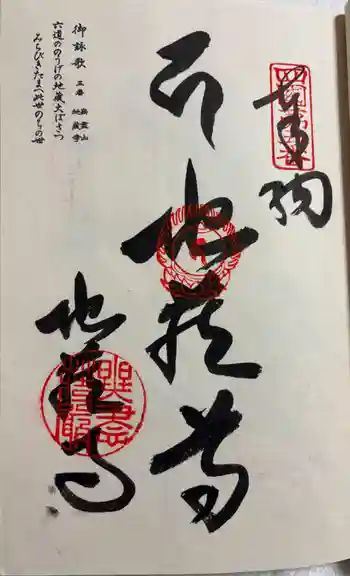 奉納
地蔵尊
地蔵寺
御詠歌 五番 無盡山 地蔵寺
六道ののうけの地蔵大ぼさつ
みちびきたまへ此世のちの世